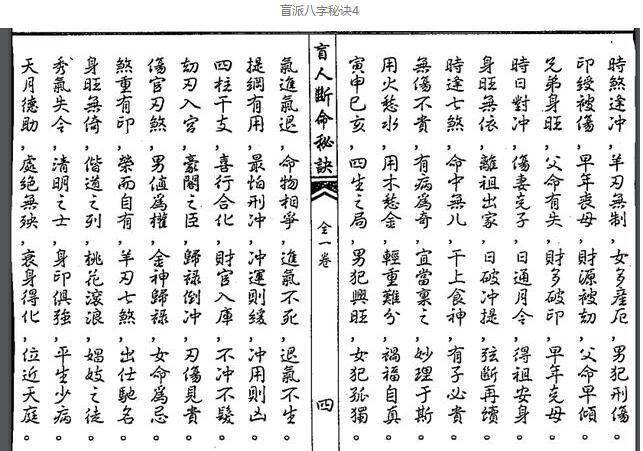 盲派八字秘诀4
時煞逢冲,羊刃無制,女多產厄,男犯刑傷。
印綬被傷,早年喪母,財源被劫,父命早傾。
兄弟身旺,父命有失,財多破印,早年克母。
時日對冲,傷妻克子,日通月令,得祖安身。
身旺無依,離祖出家,日破冲提,弦斷再續。
時逢七煞,命中無儿,干上食神,有子必貴。
無傷不貴,有病為奇,宜當稟之,妙理于斯。
用火愁水,用木愁金,輕重難分,禍福自真。
寅申巳亥,四生之局,男犯興旺,女犯孤獨。
盲人斷命秘訣
全一卷
四
氣進氣退,命物相爭,進氣不死,退氣不生。
提綱有用,最怕刑冲,冲運則緩,冲用則凶。
四柱干支,喜行合化,財官入庫,不冲不發。
刼刃入宮,豪閣之臣,歸祿倒冲,刃傷見貴。
傷官刃煞,男值為權,金神歸祿,女命為忌。
煞重有印,榮而自有,羊刃七煞,出仕馳名。
身旺無倚,偕道之列,桃花滾浪,娼妓之徒。
秀氣失令,清明之士,身印俱強,平生少病。
天月德助,處絕無殃,衰身得化,位近天庭。